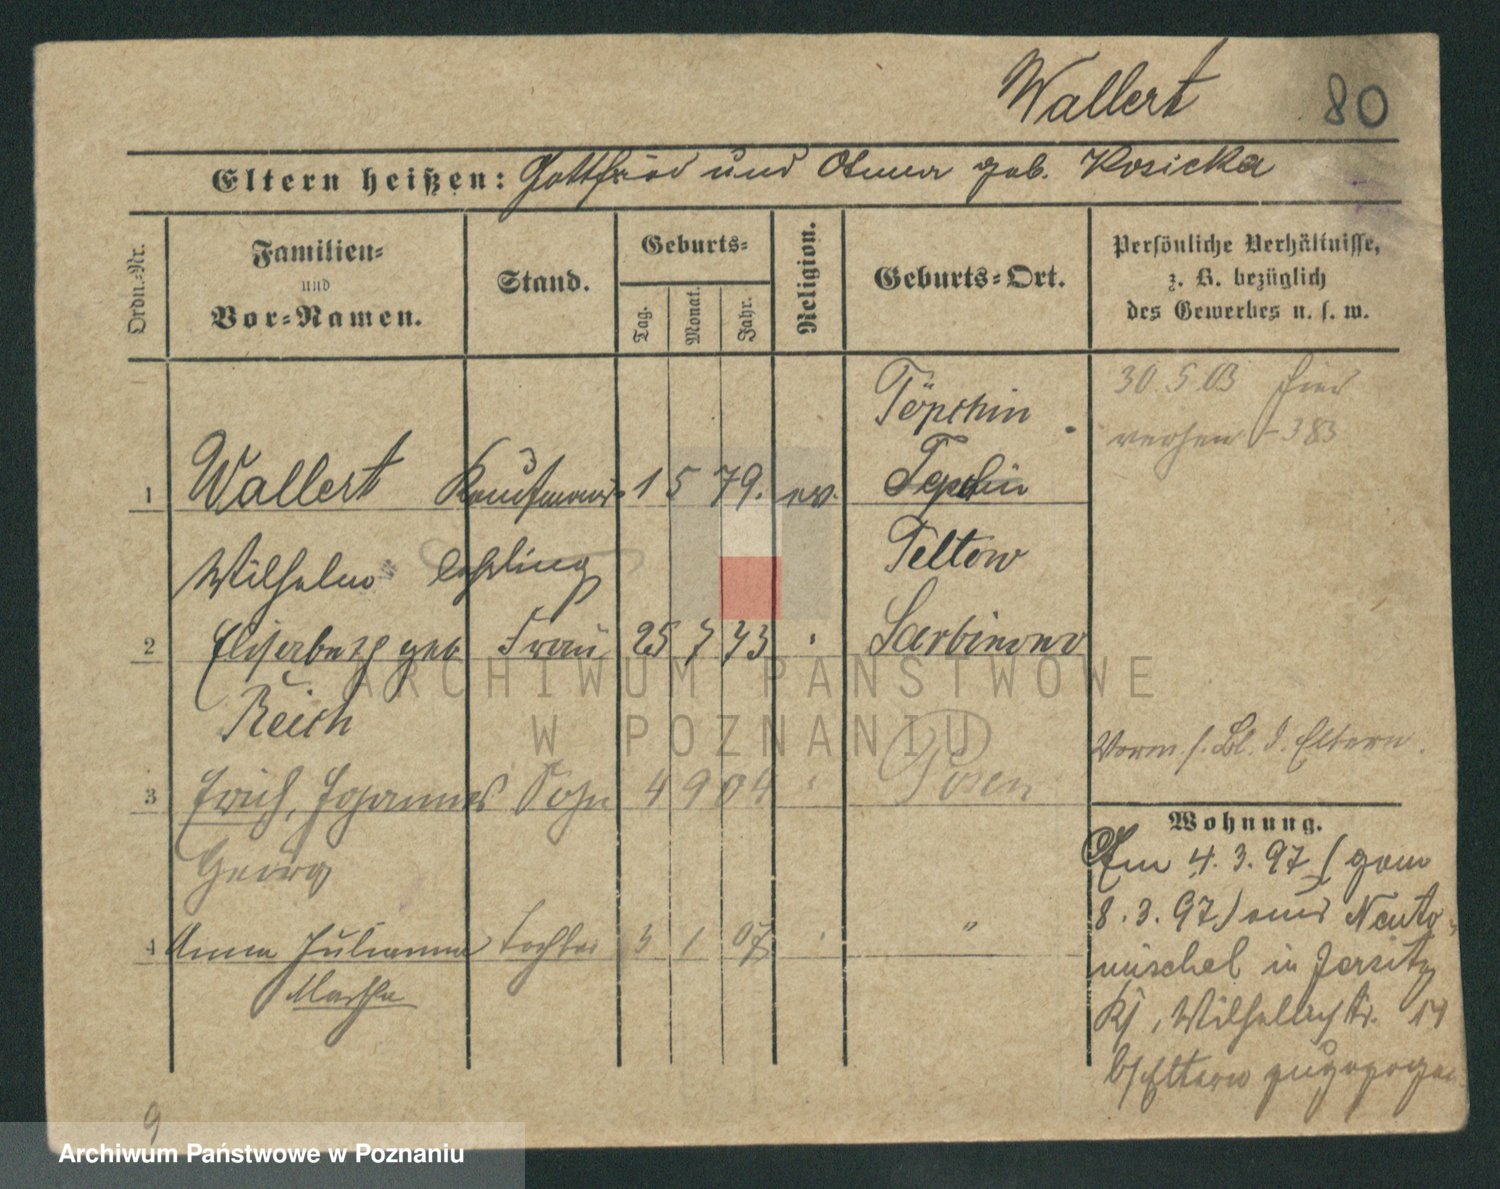 Wallert 80
Eltern heißen: Gottfried und Anna geb. Kosicka
Ordn.-Nr.
Familien- und Vor-Namen.
Stand.
Geburts-
Tag. Monat. Jahr.
Religion.
Geburts-Ort.
Persönliche Verhältnisse,
z. B. bezüglich
des Gewerbes u. s. w.
30 5 03
383
Töpchin
1 Wallert Kaufmanns- 1 5 79. ev. Teplin
Wilhelm Lehrling Teltow
2 Elisabeth geb Frau 25 7 73 " Sarbinowo
Reich
Vorm s. Bl. d. Eltern.
3 Erich, Johannes Sohn 4 9 04 " Posen
Georg
4 Anna Julianna Tochter 3 1 07 " "
Martha
Wohnung.
Am 4.3.97 (gem
8.3.97) aus Neuto-
mischel in Jersitz
Kj, Wilhelmstr. 14
b/Eltern zugezogen
9
ARCHIWUM PAŃSTWOWE
W POZNANIU
Archiwum Państwowe w Poznaniu